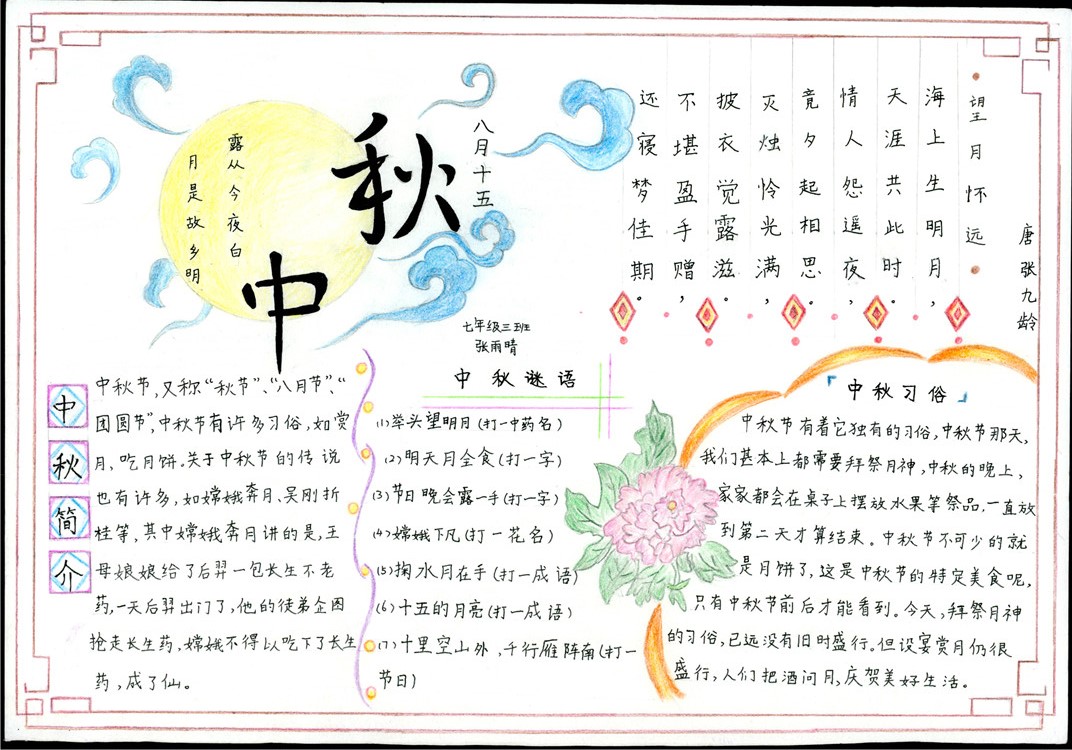 中秋
八月十五
露从今夜白
月是故乡明
七年级三班
张雨晴
望月怀远
唐 张九龄
海上生明月，
天涯共此时。
情人怨遥夜，
竟夕起相思。
灭烛怜光满，
披衣觉露滋。
不堪盈手赠，
还寝梦佳期。
中秋简介
中秋节，又称“秋节”、“八月节”、“
团圆节”，中秋节有许多习俗，如赏
月、吃月饼。关于中秋节的传说
也有许多，如嫦娥奔月、吴刚折
桂等，其中嫦娥奔月讲的是，王
母娘娘给了后羿一包长生不老
药，一天后羿出门了，他的徒弟企图
抢走长生药，嫦娥不得以吃下了长生
药，成了仙。
中秋谜语
(1)举头望明月(打一中药名)
(2)明天月全食(打一字)
(3)节日晚会露一手(打一字)
(4)嫦娥下凡(打一花名)
(5)掬水月在手(打一成语)
(6)十五的月亮(打一成语)
(7)十里空山外，千行雁阵南(打一
节日)
「中秋习俗」
中秋节有着它独有的习俗，中秋节那天，
我们基本上都需要拜祭月神，中秋的晚上，
家家都会在桌子上摆放水果等祭品，一直放
到第二天才算结束。中秋节不可少的就
是月饼了，这是中秋节的特定美食呢，
只有中秋节前后才能看到。今天，拜祭月神
的习俗，已远没有旧时盛行。但设宴赏月仍很
盛行，人们把酒问月，庆贺美好生活。